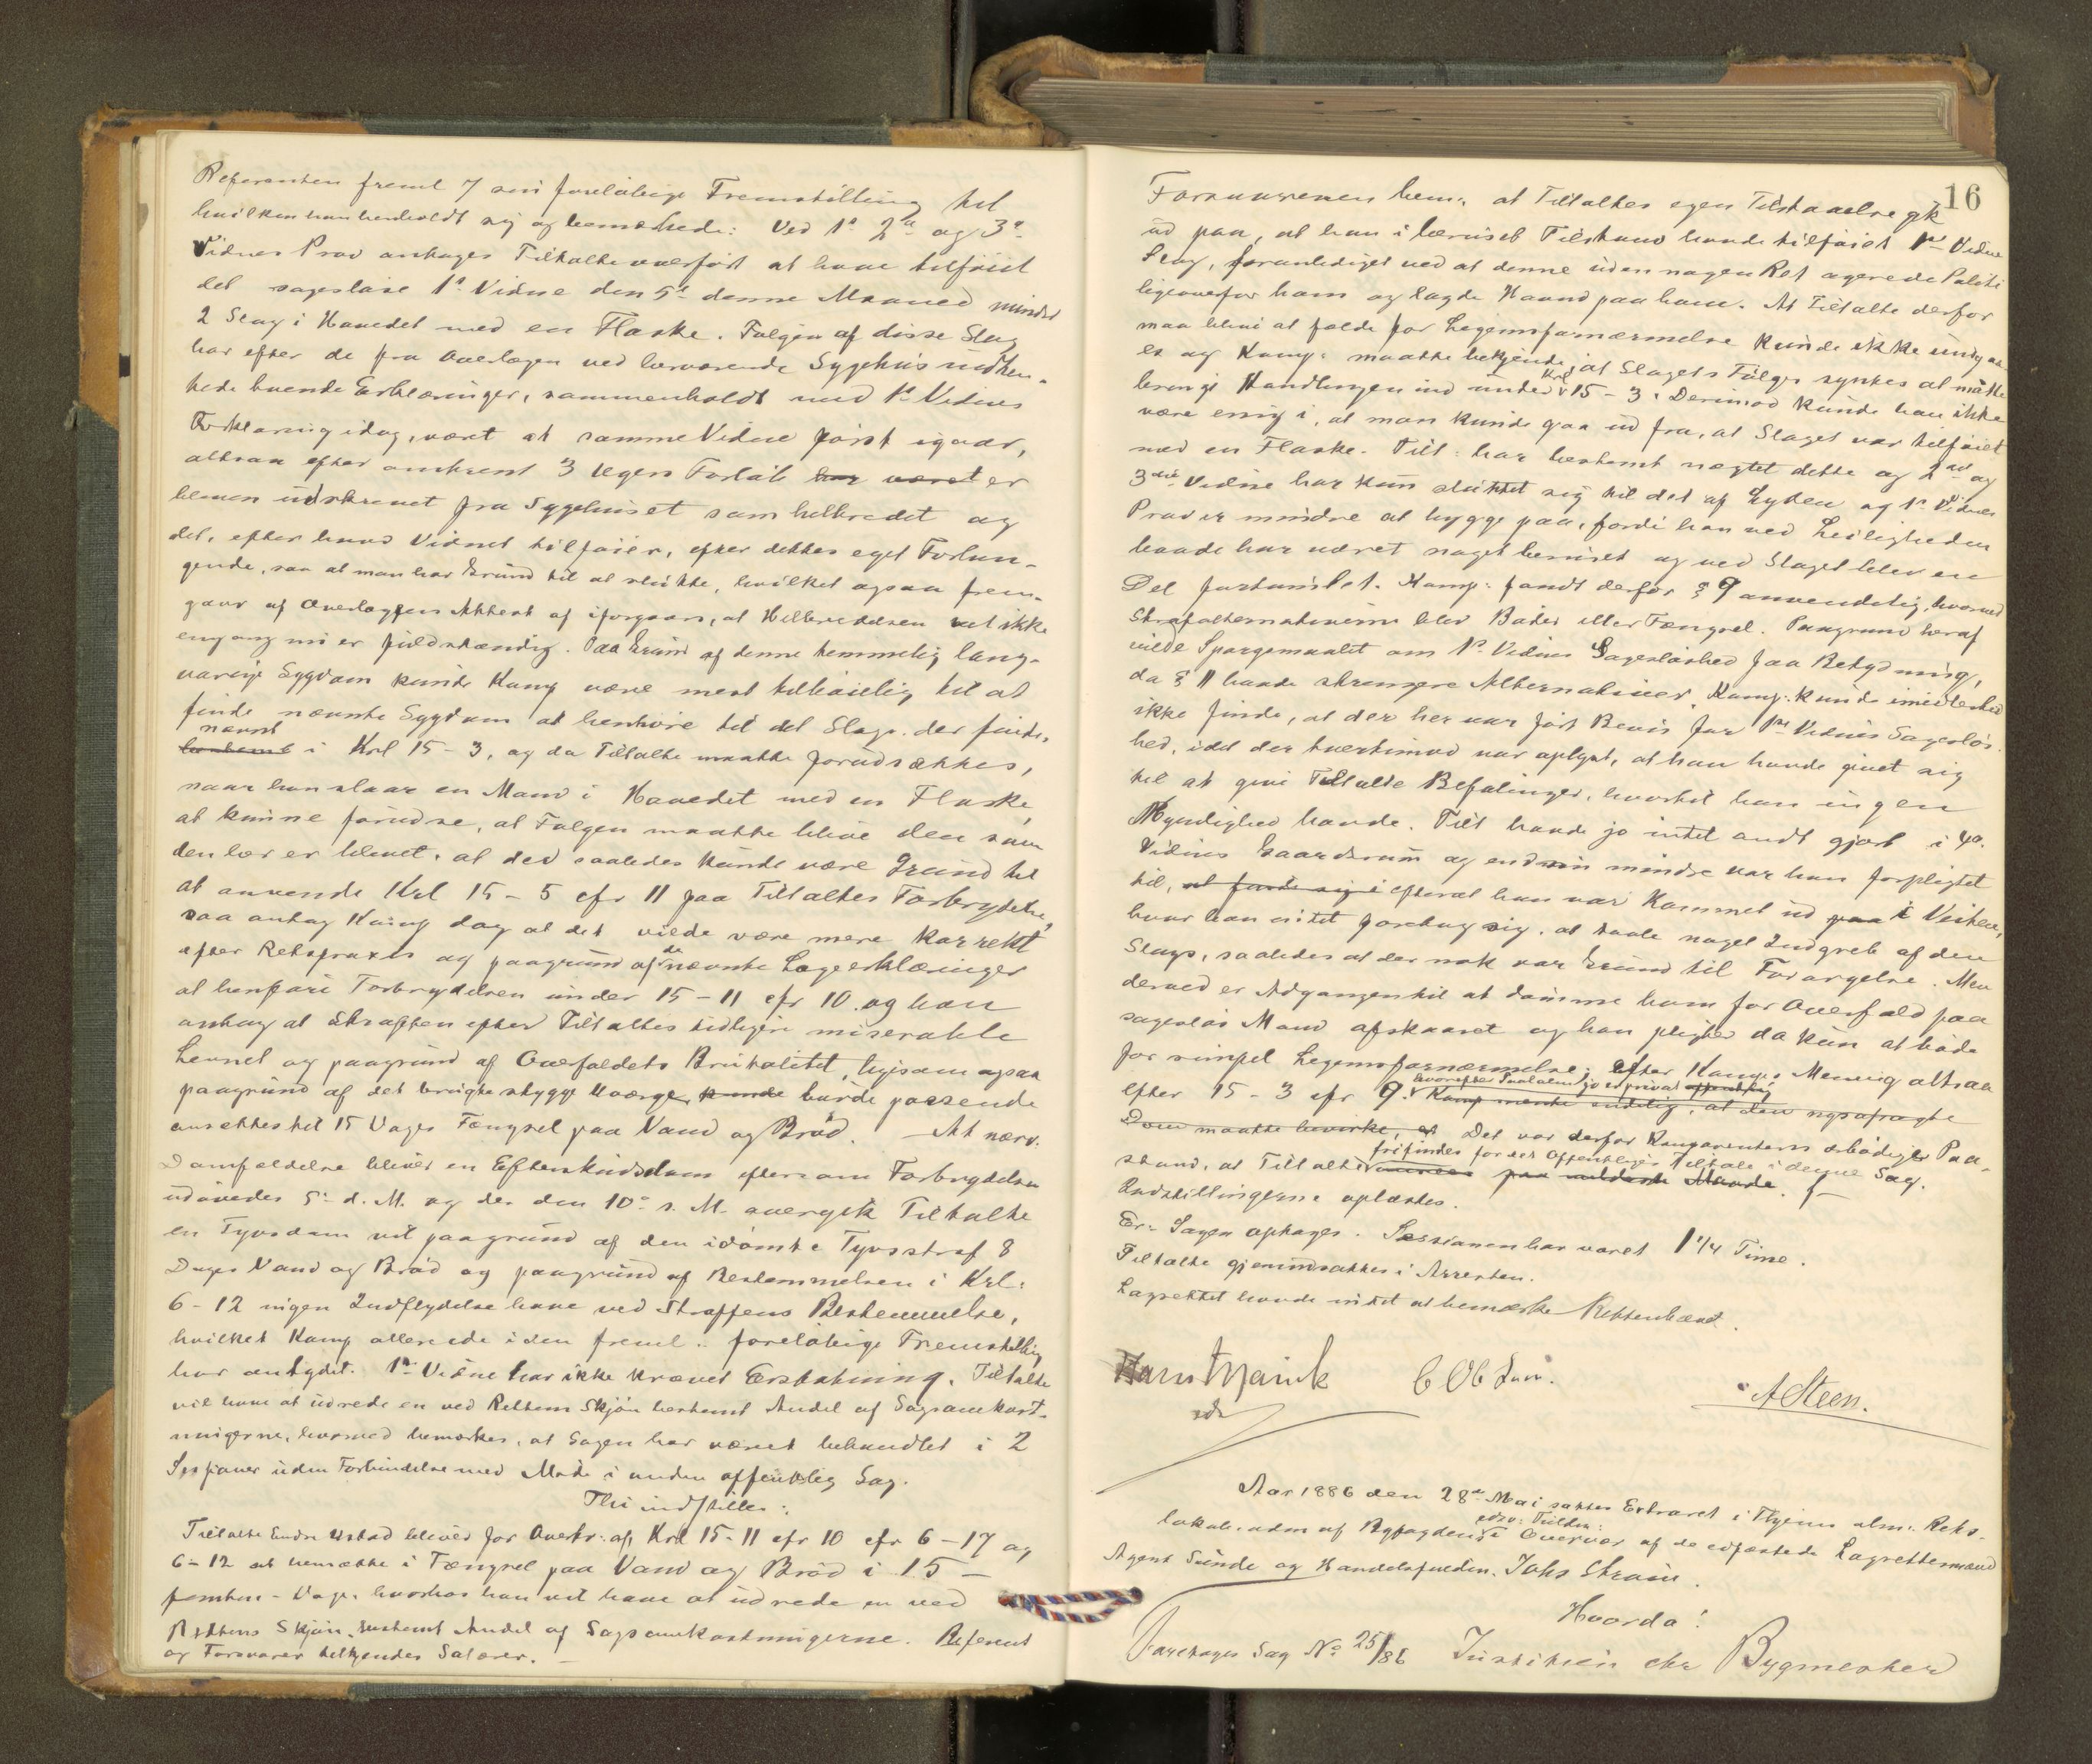 Referenten freml 7 sin foreløbige Fremstilling til
hvilken han henholdt sig og bemærkede: Ved 1ᵉ 2ᵉ og 3ᵉ
Vidnes Prov antages Tiltalte overført at have tilføiet
det sagesløse 1ᵉ Vidne den 5ᵗᵉ denne Maaned mindst
2 Slag i Hovedet med en Flaske. Følgen af disse Slag
har efter de fra Overlægen ved herværende Sygehus indhen-
tede beroende Erklæringer, sammenholdt med 1ᵉ Vidnes
Forklaring idag, været at samme Vidne først igaar,
altsaa efter omkrent 3 Ugers Forløb har været er
bleven udskrevet fra Sygehuset som helbredet og
det, efter hvad Vidnet tilføier, efter dettes eget Forlan-
gende, saa at man har Grund til at slutte, hvilket ogsaa frem-
gaar af Overlægens Attest af iforgaars, at Helbredelsen vel ikke
engang nu er fuldstændig. Paa Grund af denne temmelig lang-
varige Sygdom kunde Komp være mest tilbøielig til at
finde nævnte Sygdom at henhøre til det Slags, der findes
nævnt
bestemt i Krl 15-3, og da Tiltalte maatte forudsættes,
naar han slaar en Mand i Hovedet med en Flaske,
at kunne forudse, at Følgen maatte blive den som
den her er blevet, at der saaledes kunde være Grund til
at anvende Krl 15-5 cfr 11 paa Tiltaltes Forbrydelse,
saa antog Komp dog at det vilde være mere korrekt
efter Retspraxis og paagrund af de nævnte Lægeerklæringer
at henføre Forbrydelsen under 15-11 cfr 10. og han
antog at Straffen efter Tiltaltes tidligere miserable
Levnet og paagrund af Overfaldets Brutalitet, ligesom ogsaa
paagrund af det brugte stygge Vaaben, kunde burde passende
ansættes til 15 Dages Fængsel paa Vand og Brød. At nærv.
Domfældelse bliver en Efterskudsdom eftersom Forbrydelsen
udøvedes 5ᵗᵉ d. M. og der den 10ᵉ s. M. overgik Tiltalte
en Tyvsdom vil paagrund af den idømte Tyvsstraf 8
Dages Vand og Brød og paagrund af Bestemmelsen i Krl.
6-12 ingen Indflydelse have ved Straffens Bestemmelse,
hvilket Komp allerede i den freml. foreløbige Fremstilling
har antydet. 1ᵉ Vidne har ikke krævet Erstatning. Tiltalte
vil have at udrede en ved Rettens Skjøn bestemt Andel af Sagsomkost-
ningerne, hvorved bemærkes, at Sagen har været behandlet i 2
Sessioner uden Forbindelse med Møde i anden offentlig Sag.
Thi indstilles:
Tiltalte Endre Ustad bliver for Overtr. af Krl 15-11 cfr 10 cfr 6-17 og
6-12 at hensætte i Fængsel paa Vand og Brød i 15 -
femten - Dage, hvorhos han vil have at udrede en ved
Rettens Skjøn bestemt Andel af Sagsomkostningerne. Referent
og Forsvarer tilkjendes Salærer. -
16
Forsvareren bem. at Tiltaltes egen Tilstaaelse gik
ud paa, at han i beruset Tilstand havde tilføiet 1ᵉ Vidne
Slag, foranlediget ved at denne uden nogen Ret agerede Politi
ligeoverfor ham og lagde Haand paa ham. At Tiltalte derfor
maa blive at fælde for Legemsfornærmelse kunde ikke undgaaes
og Komp: maatte bekjende, at Slagets Følger syntes at måtte
bringe Handlingen ind under Krl 15-3. Derimod kunde han ikke
være enig i, at man kunde gaa ud fra, at Slaget var tilføiet
med en Flaske. Tilt: har bestemt nægtet dette og 2ᵈᵉᵗ og
3ᵈⁱᵉ Vidne har kun sluttet sig til det af Lyden og 1ᵉ Vidnes
Prov er mindre at bygge paa, fordi han ved Leiligheden
baade har været noget beruset og ved Slaget blev en
Del fortumlet. Komp: fandt derfor § 9 anvendelig, hvorved
Strafalternativerne blev Bøder eller Fængsel. Paagrund heraf
vilde Spørgsmaalet om 1ᵉ Vidnes Sagesløshed faa Betydning,
da § 11 havde strengere Alternativer. Komp: kunde imidlertid
ikke finde, at der her var ført Bevis for 1ˢᵗᵉ Vidnes Sagesløs-
hed, idet der tvertimod var oplyst, at han havde givet sig
til at give Tiltalte Befalinger, hvortil han ingen
Myndighed havde. Tilt havde jo intet andt gjort i 4ᵈᵉ
Vidnes Gaardsrum og endnu mindre var han forpligtet
til, at finde sig i efterat han var kommet ud paa i Veiten,
hvor han intet foretog sig, at taale noget Indgreb af den
Slags, saaledes at der nok var Grund til Forargelse. Men
derved er Adgangen til at dømme ham for Overfald paa
sagesløs Mand afskaaret og han pligter da kun at bøde
for simpel Legemsfornærmelse; efter Komp. Mening altsaa
hvorefter Paatalen jo er privat offentlig
efter 15-3 cfr 9. Komp mente endelig, at den nysafsagte
Dom maatte bevirke, at Det var derfor Komparentens ærbødige Paa-
frifindes for det Offentliges Tiltale i denne Sag.
stand, at Tiltalte ansees paa mildeste Maade.
Indstillingerne oplæstes.
Er: Sagen optages. Sessionen har varet 1¼ Time.
Tiltalte gjenindsattes i Arresten.
Lagrettet havde intet at bemærke Retten hævet.
C Ob Lun. A Steen.
Aar 1886 den 28ᵉ Mai sattes Extraret i Byens alm. Rets-
lokale, adm af Byfogden i Overvær af de edfæstede Lagrettesmænd
Agent Sunde og Handelsfuldm. Johs Strøm.
Hvorda!
Foretoges Sag Nᵒ 25/86 Justitien ctr Bygmester